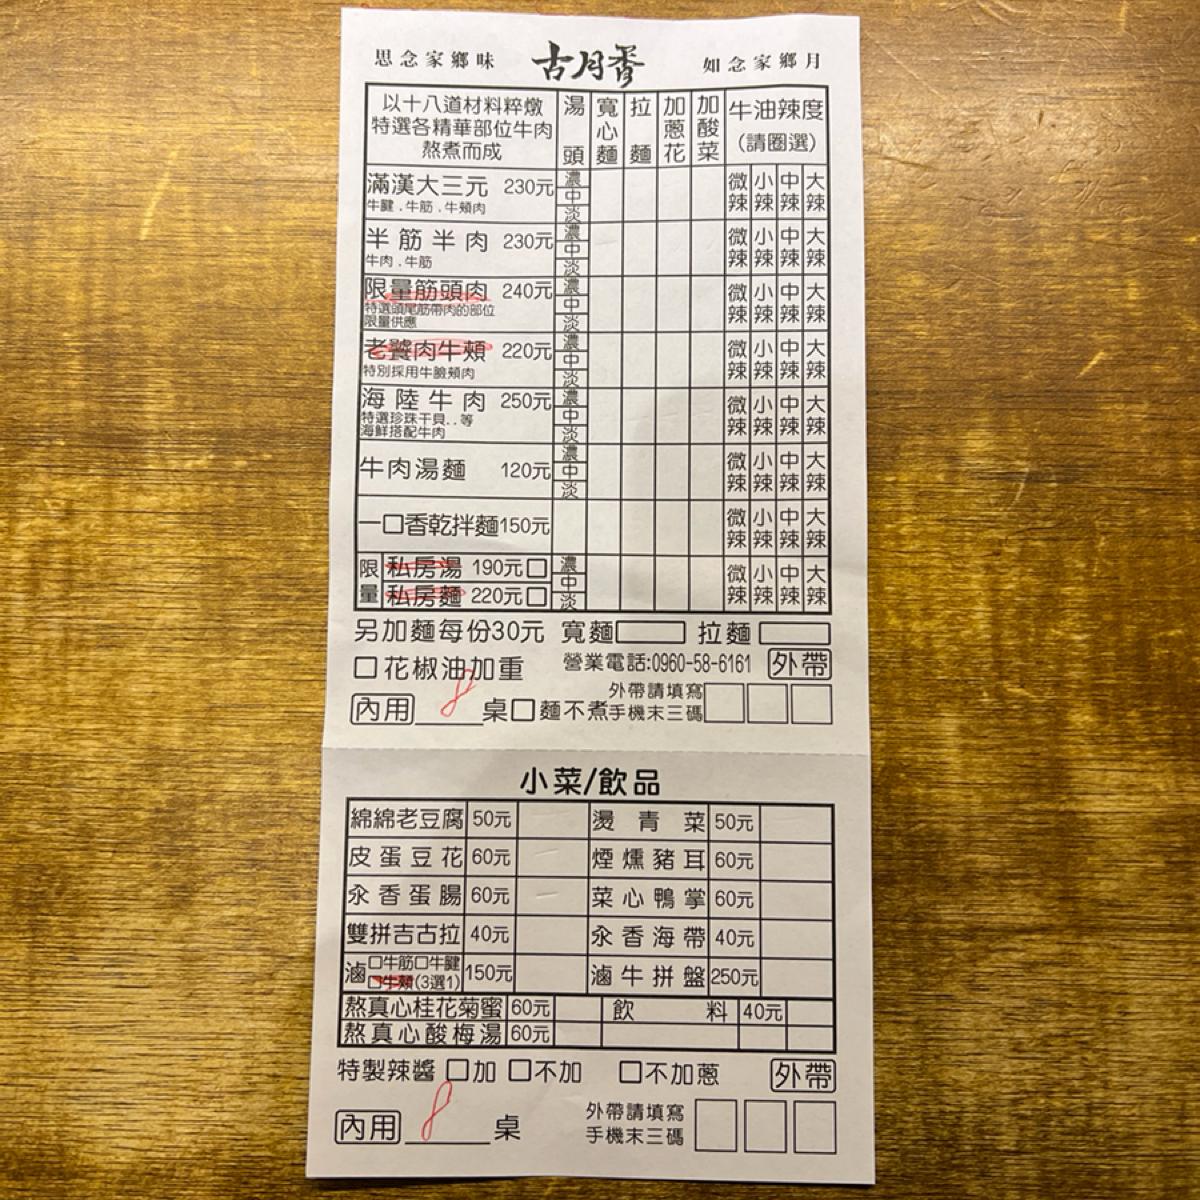 思念家鄉味 古月香 如念家鄉月
以十八道材料粹燉
特選各精華部位牛肉
熬煮而成
湯頭 寬心麵 拉麵 加蔥花 加酸菜 牛油辣度
(請圈選)
滿漢大三元 230元 濃 中 淡 微辣 小辣 中辣 大辣
牛腱.牛筋.牛頰肉
半筋半肉 230元 濃 中 淡 微辣 小辣 中辣 大辣
牛肉.牛筋
限量筋頭肉 240元 濃 中 淡 微辣 小辣 中辣 大辣
特選頭尾筋帶肉的部位
限量供應
老饕肉牛頰 220元 濃 中 淡 微辣 小辣 中辣 大辣
特別採用牛臉頰肉
海陸牛肉 250元 濃 中 淡 微辣 小辣 中辣 大辣
特選珍珠干貝..等
海鮮搭配牛肉
牛肉湯麵 120元 濃 中 淡 微辣 小辣 中辣 大辣
一口香乾拌麵150元 微辣 小辣 中辣 大辣
限量 私房湯 190元□ 濃 中 淡 微辣 小辣 中辣 大辣
私房麵 220元□
另加麵每份30元 寬麵 拉麵
□花椒油加重 營業電話:0960-58-6161 外帶
內用 8 桌□麵不煮 外帶請填寫
手機末三碼
小菜/飲品
綿綿老豆腐 50元 燙青菜 50元
皮蛋豆花 60元 煙燻豬耳 60元
汆香蛋腸 60元 菜心鴨掌 60元
雙拼吉古拉 40元 汆香海帶 40元
滷 □牛筋□牛腱 150元 滷牛拼盤 250元
□牛頰(3選1)
熬真心桂花菊蜜 60元 飲料 40元
熬真心酸梅湯 60元
特製辣醬 □加 □不加 □不加蔥 外帶
內用 8 桌 外帶請填寫
手機末三碼